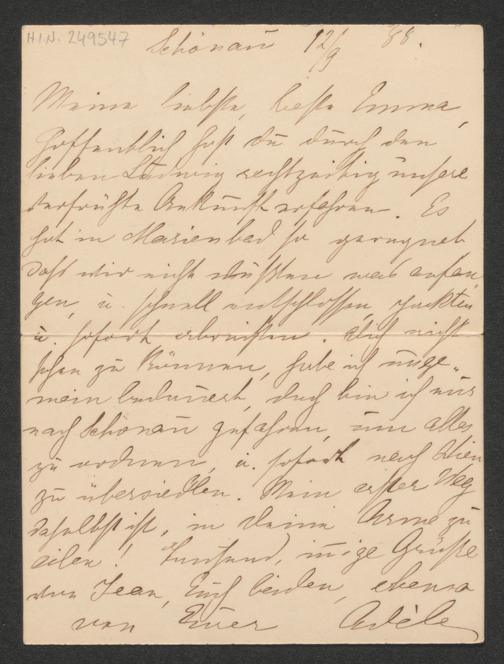 H.I.N. 249547
Schönau 12/9 88.
Meine liebste, beste Emma,
Hoffentlich hast du durch den
lieben Ludwig rechtzeitig unsere
verfrühte Ankunft erfahren. Es
hat in Marienbad so geregnet
daß wir nicht wußten was anfan
gen, u. schnell entschlossen, packten
u. sofort abreisten. Dich nicht
sehen zu können, habe ich unge-
mein bedauert, doch bin ich nur
nach Schönau gefahren, um alles
zu ordnen, u. sofort nach Wien
zu übersiedlen. Mein erster Weg
daselbst ist, in deine Arme zu
eilen! Tausend, innige Grüße
von Jean, Euch beiden, ebenso
von Eurer Adèle